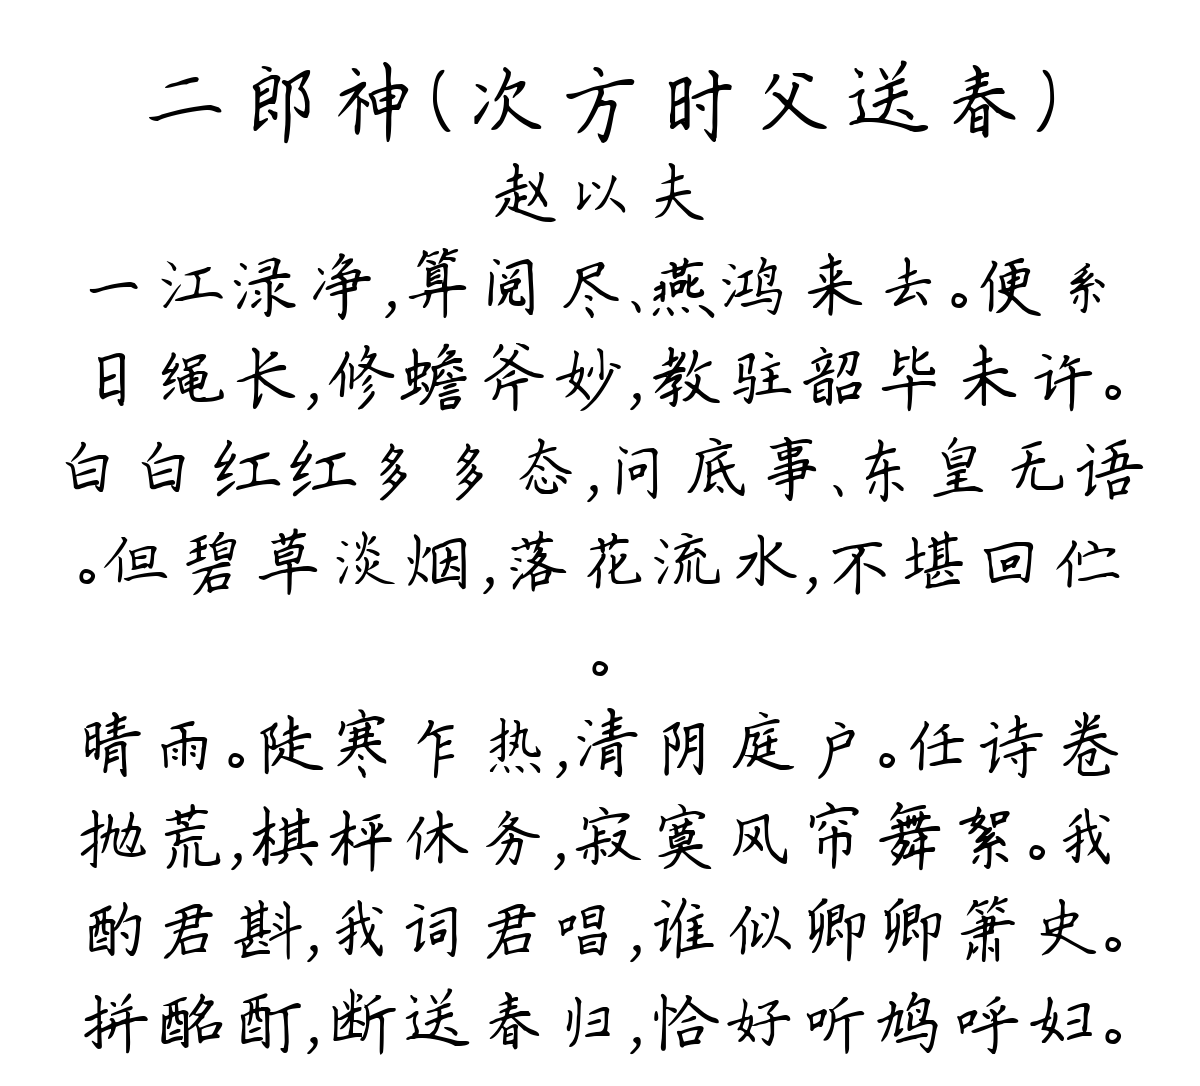 二郎神(次方时父送春)
赵以夫
一江渌净,算阅尽、燕鸿来去。便系
日绳长,修蟾斧妙,教驻韶华未许。
白白红红多多态,问底事、东皇无语
。但碧草淡烟,落花流水,不堪回伫
。
晴雨。陡寒乍热,清阴庭户。任诗卷
抛荒,棋枰休务,寂寞风帘舞絮。我
酌君斟,我词君唱,谁似卿卿箫史。
拼酩酊,断送春归,恰好听鸠呼妇。